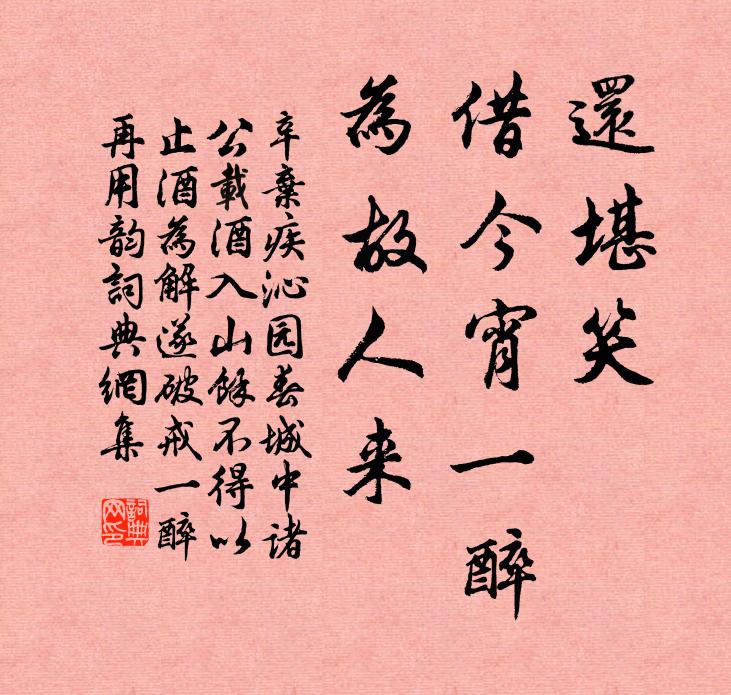 還堪笑
借今宵一醉
為故人来
辛棄疾沁园春城中諸
公載酒入山餘不得以
止酒為解遂破戒一醉
再用韵詞典網集
詞典
网印